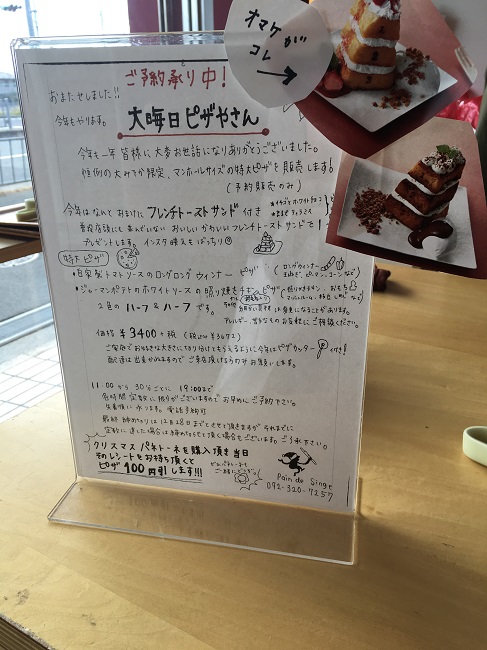 オマケが
コレ
ご予約承り中!
おまたせしました!!
今年もやります。
大晦日ピザやさん
今年も一年皆様に大変お世話になりありがとうございました。
恒例の大みそか限定、マンホールサイズの特大ピザを販売します!
(予約販売のみ)
今年はなんとおまけに フレンチトーストサンド 付き
普段店頭にもまんでいない おいしい かわいい フレンチトーストサンドを1つ
プレゼントします。インスタ映えもばっちり
特大ピザ
・自家製トマトソースのロングロングウィンナーピザ
(ロングウィンナー
玉ねぎ、ピーマン、コーンなど)
・ジャーマンポテトのホワイトソースの照り焼きチキンピザ
2色のハーフ&ハーフです。
アレルギー、苦手なものお気軽にご相談ください。
価格 ¥3400+税 (税込¥3672)
ご家庭でお好きな大きさに切り分けてもらえるように今年はピザカッター付き!
配達は出来かねますのでご来店頂けますようお願いします。
11:00から30分ごとに 19:00まで
各時間定数に限りがございますのでお早めにご予約下さい。
先着順に承ります。電話予約可
最終締めきりは12月28日までとさせて頂きますが、それまでに
定数に達した場合は締めきらせて頂く場合もございます。ご了承下さい。
クリスマスパネトーネを購入頂き当日
そのレシートをお持ち頂くと
ピザ100円引します!!!
Pain de Singe
092-320-7257